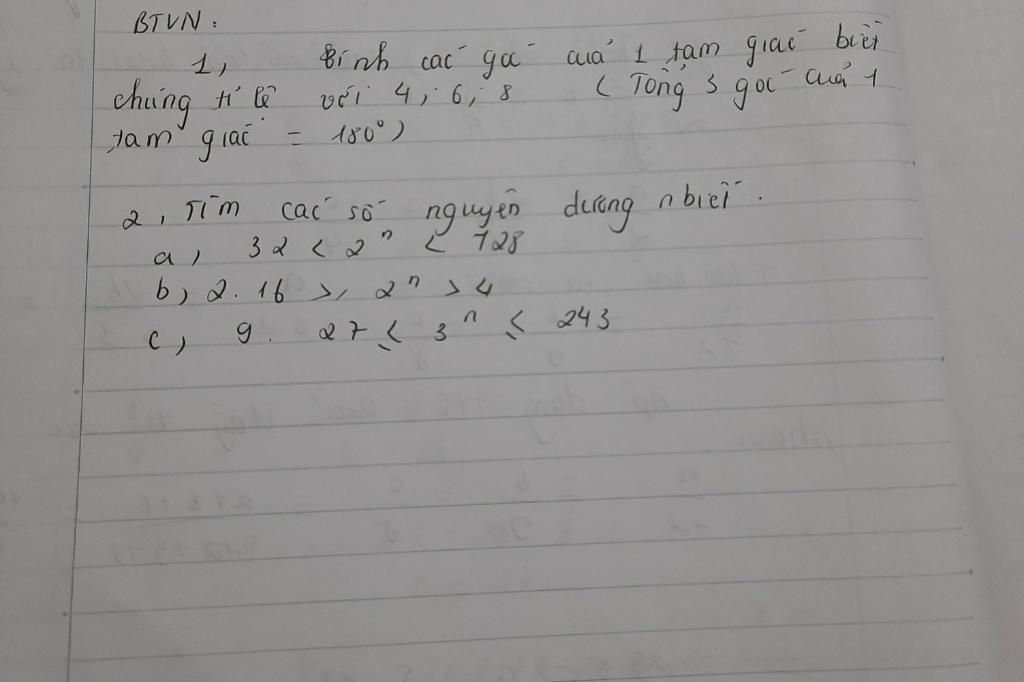 BTVN:
1, Tính các góc của 1 tam giác biết
chúng tỉ lệ với 4; 6; 8 ( Tổng 3 góc của 1
tam giác = 180°)
2, Tìm các số nguyên dương n biết.
a, 32 < 2ⁿ < 128
b, 2.16 ≥ 2ⁿ > 4
c, 9. 27 ≤ 3ⁿ ≤ 243